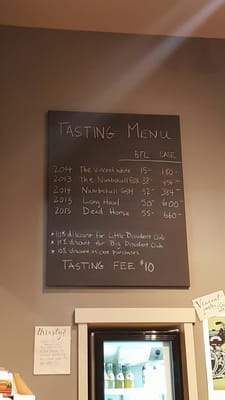 TASTING MENU
BTL CASE
2014 The Vincent white 15- 180-
2013 The Numbskull BDX 38-
2014 Numbskull GSM 32- 384-
2013 Long Haul 50- 600-
2013 Dead Horse 55- 660-
* 10% discount for Little Dissident Club
* 15% discount for Big Dissident Club
* 10% discount on case purchases
TASTING FEE $10
thirsty?
Vincent